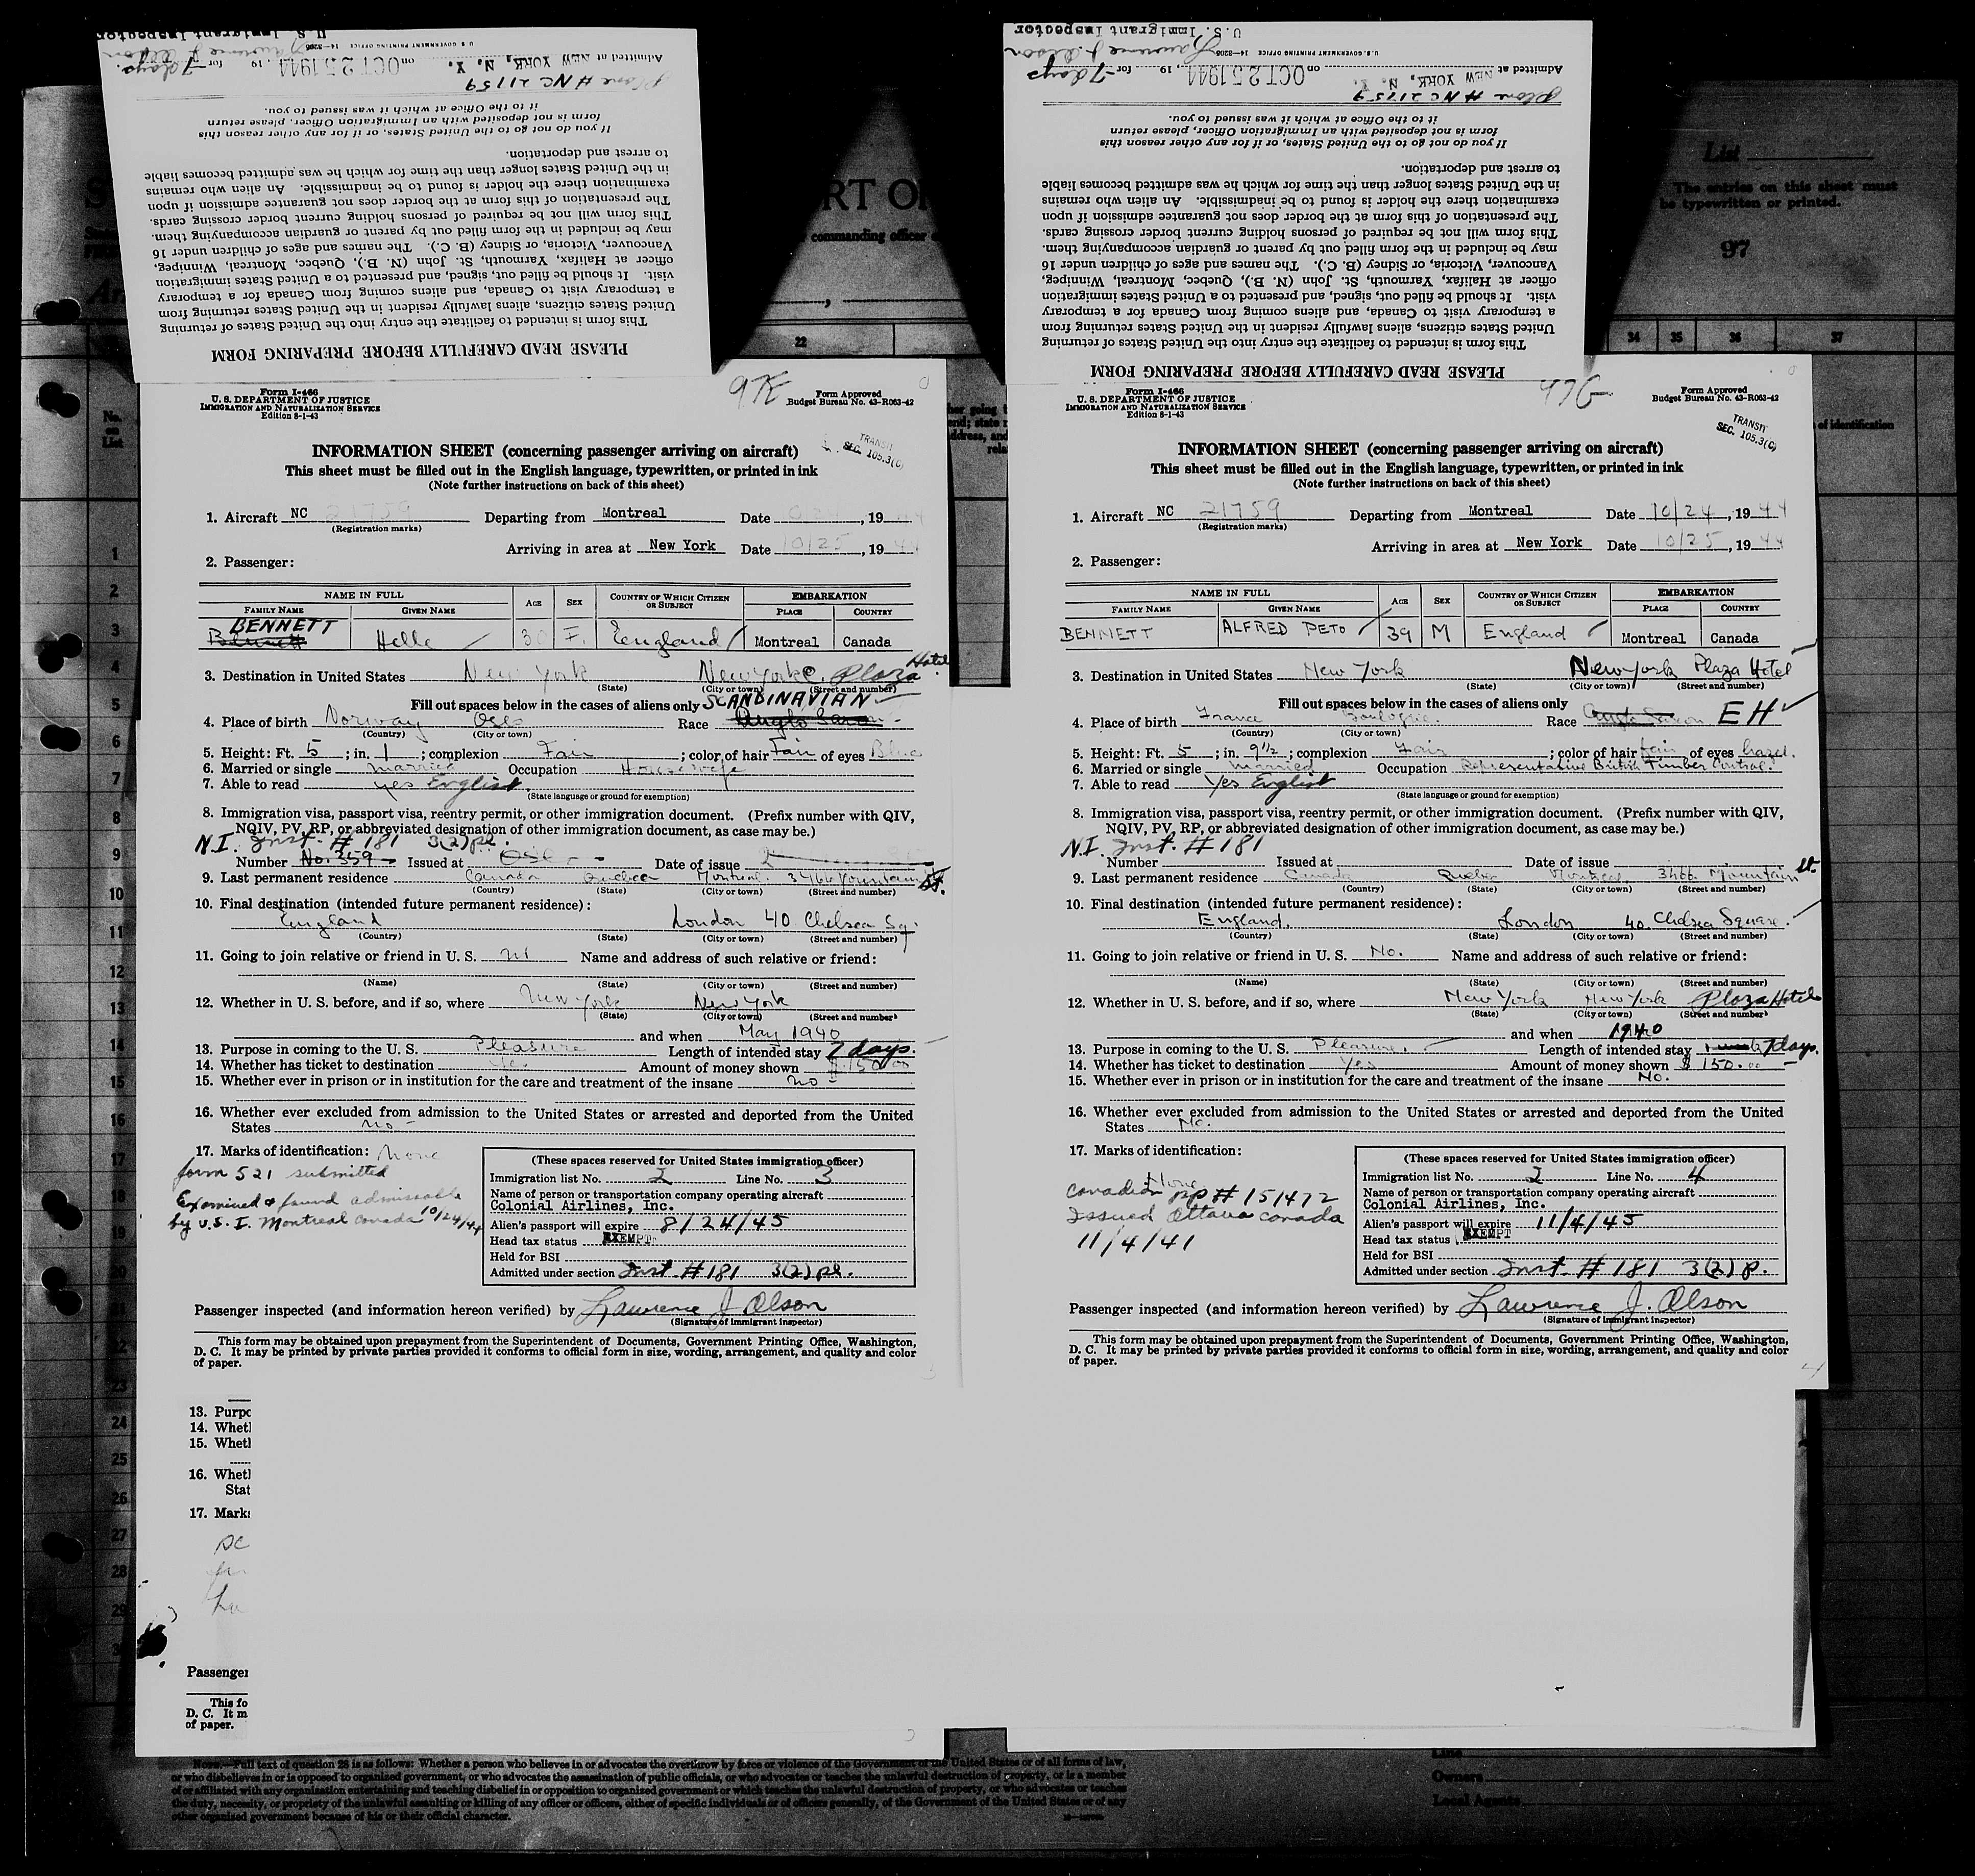 U.S. Immigrant Inspector
U S GOVERNMENT PRINTING OFFICE 14—3208
Lawrence J. Olson
Admitted at NEW YORK, N. Y. on OCT 25 1944, 19 for 7 days.
Plane # NC 21759
If you do not go to the United States, or if for any other reason this
form is not deposited with an Immigration Officer, please return
it to the Office at which it was issued to you.
to arrest and deportation.
in the United States longer than the time for which he was admitted becomes liable
examination there the holder is found to be inadmissible. An alien who remains
The presentation of this form at the border does not guarantee admission if upon
This form will not be required of persons holding current border crossing cards.
may be included in the form filled out by parent or guardian accompanying them.
Vancouver, Victoria, or Sidney (B. C.). The names and ages of children under 16
officer at Halifax, Yarmouth, St. John (N. B.), Quebec, Montreal, Winnipeg,
visit. It should be filled out, signed, and presented to a United States immigration
a temporary visit to Canada, and aliens coming from Canada for a temporary
United States citizens, aliens lawfully resident in the United States returning from
This form is intended to facilitate the entry into the United States of returning
PLEASE READ CAREFULLY BEFORE PREPARING FORM
Form I-466
U. S. DEPARTMENT OF JUSTICE
IMMIGRATION AND NATURALIZATION SERVICE
Edition 8-1-43
97F
Form Approved
Budget Bureau No. 43-R063-42
TRANSIT
SEC. 105.3(C)
INFORMATION SHEET (concerning passenger arriving on aircraft)
This sheet must be filled out in the English language, typewritten, or printed in ink
(Note further instructions on back of this sheet)
1. Aircraft NC 21759 Departing from Montreal Date , 19 44
(Registration marks)
Arriving in area at New York Date 10/25, 19 44
2. Passenger:
NAME IN FULL AGE SEX COUNTRY OF WHICH CITIZEN OR SUBJECT EMBARKATION
FAMILY NAME GIVEN NAME PLACE COUNTRY
BENNETT
Bennett Helle 30 F. England Montreal Canada
3. Destination in United States New York New York Plaza Hotel
(State) (City or town) (Street and number)
Fill out spaces below in the cases of aliens only SCANDINAVIAN
4. Place of birth Norway Oslo Race Anglo Saxon
(Country) (City or town)
5. Height: Ft. 5; in. 1; complexion Fair; color of hair Fair of eyes Blue
6. Married or single married Occupation Housewife
7. Able to read yes English
(State language or ground for exemption)
8. Immigration visa, passport visa, reentry permit, or other immigration document. (Prefix number with QIV,
NQIV, PV, RP, or abbreviated designation of other immigration document, as case may be.)
N.I. Inst. # 181 3(2) pl.
Number No. 359 Issued at Oslo Date of issue
9. Last permanent residence Canada Quebec Montreal 3466 Mountain St.
(Country) (State) (City or town) (Street and number)
10. Final destination (intended future permanent residence):
England London 40 Chelsea Sq.
(Country) (State) (City or town) (Street and number)
11. Going to join relative or friend in U. S. Name and address of such relative or friend:
(Name) (State) (City or town) (Street and number)
12. Whether in U. S. before, and if so, where New York New York
(State) (City or town) (Street and number)
and when May 1940
13. Purpose in coming to the U. S. Pleasure Length of intended stay 7 days.
14. Whether has ticket to destination Yes Amount of money shown $ 150.00
15. Whether ever in prison or in institution for the care and treatment of the insane no
16. Whether ever excluded from admission to the United States or arrested and deported from the United
States no
17. Marks of identification: None
form 521 submitted
Examined & found admissable
by U.S.I. Montreal Canada 10/24/44
(These spaces reserved for United States immigration officer)
Immigration list No. 2 Line No. 3
Name of person or transportation company operating aircraft
Colonial Airlines, Inc.
Alien's passport will expire 8/24/45
Head tax status EXEMPT
Held for BSI
Admitted under section Inst #181 3(2) pl.
Passenger inspected (and information hereon verified) by Lawrence J Olson
(Signature of immigrant inspector)
This form may be obtained upon prepayment from the Superintendent of Documents, Government Printing Office, Washington,
D. C. It may be printed by private parties provided it conforms to official form in size, wording, arrangement, and quality and color
of paper.
13. Purpo
14. Wheth
15. Wheth
16. Wheth
Stat
17. Marks
Passenger
This fo
D. C. It m
of paper.
U.S. Immigrant Inspector
U.S. GOVERNMENT PRINTING OFFICE 14—3208
Lawrence J. Olson
Admitted at NEW YORK, N. Y. on OCT 25 1944, 19 for 7 days
Plane # NC 21759
If you do not go to the United States, or if for any other reason this
form is not deposited with an Immigration Officer, please return
it to the Office at which it was issued to you.
to arrest and deportation.
in the United States longer than the time for which he was admitted becomes liable
examination there the holder is found to be inadmissible. An alien who remains
The presentation of this form at the border does not guarantee admission if upon
This form will not be required of persons holding current border crossing cards.
may be included in the form filled out by parent or guardian accompanying them.
Vancouver, Victoria, or Sidney (B. C.). The names and ages of children under 16
officer at Halifax, Yarmouth, St. John (N. B.), Quebec, Montreal, Winnipeg,
visit. It should be filled out, signed, and presented to a United States immigration
a temporary visit to Canada, and aliens coming from Canada for a temporary
United States citizens, aliens lawfully resident in the United States returning from
This form is intended to facilitate the entry into the United States of returning
PLEASE READ CAREFULLY BEFORE PREPARING FORM
Form I-466
U. S. DEPARTMENT OF JUSTICE
IMMIGRATION AND NATURALIZATION SERVICE
Edition 8-1-43
97G
Form Approved
Budget Bureau No. 43-R063-42
TRANSIT
SEC. 105.3(C)
INFORMATION SHEET (concerning passenger arriving on aircraft)
This sheet must be filled out in the English language, typewritten, or printed in ink
(Note further instructions on back of this sheet)
1. Aircraft NC 21759 Departing from Montreal Date 10/24, 19 44
(Registration marks)
Arriving in area at New York Date 10/25, 19 44
2. Passenger:
NAME IN FULL AGE SEX COUNTRY OF WHICH CITIZEN OR SUBJECT EMBARKATION
FAMILY NAME GIVEN NAME PLACE COUNTRY
BENNETT ALFRED PETO 39 M England Montreal Canada
3. Destination in United States New York New York Plaza Hotel
(State) (City or town) (Street and number)
Fill out spaces below in the cases of aliens only
4. Place of birth France Boulogne. Race Anglo Saxon EH
(Country) (City or town)
5. Height: Ft. 5; in. 9½; complexion Fair; color of hair fair of eyes hazel.
6. Married or single Married Occupation Representative British Timber Control.
7. Able to read Yes English
(State language or ground for exemption)
8. Immigration visa, passport visa, reentry permit, or other immigration document. (Prefix number with QIV,
NQIV, PV, RP, or abbreviated designation of other immigration document, as case may be.)
N.I. Inst. # 181
Number Issued at Date of issue
9. Last permanent residence Canada Quebec Montreal 3466 Mountain St.
(Country) (State) (City or town) (Street and number)
10. Final destination (intended future permanent residence):
England. London 40. Chelsea Square.
(Country) (State) (City or town) (Street and number)
11. Going to join relative or friend in U. S. No. Name and address of such relative or friend:
(Name) (State) (City or town) (Street and number)
12. Whether in U. S. before, and if so, where New York New York Plaza Hotel
(State) (City or town) (Street and number)
and when 1940
13. Purpose in coming to the U. S. Pleasure. Length of intended stay 7 days.
14. Whether has ticket to destination Yes Amount of money shown $ 150.00
15. Whether ever in prison or in institution for the care and treatment of the insane No.
16. Whether ever excluded from admission to the United States or arrested and deported from the United
States No.
17. Marks of identification:
None
Canadian pp # 151472
Issued Ottawa Canada
11/4/41
(These spaces reserved for United States immigration officer)
Immigration list No. 2 Line No. 4
Name of person or transportation company operating aircraft
Colonial Airlines, Inc.
Alien's passport will expire 11/4/45
Head tax status EXEMPT
Held for BSI
Admitted under section Inst. # 181 3(2) p.
Passenger inspected (and information hereon verified) by Lawrence J. Olson
(Signature of immigrant inspector)
This form may be obtained upon prepayment from the Superintendent of Documents, Government Printing Office, Washington,
D. C. It may be printed by private parties provided it conforms to official form in size, wording, arrangement, and quality and color
of paper.
4
RT OF
commanding officer
List
The entries on this sheet must
be typewritten or printed.
97
22
34 35 36 37
of identification
No.
List
1
2
3
4
5
6
7
8
9
10
11
12
13
14
15
16
17
18
19
20
22
23
24
25
26
27
28
29
NOTE.—Full text of question 28 is as follows: Whether a person who believes in or advocates the overthrow by force or violence of the Government of the United States or of all forms of law,
or who disbelieves in or is opposed to organized government, or who advocates the assassination of public officials, or who advocates or teaches the unlawful destruction of property, or is a member
of or affiliated with any organization entertaining and teaching disbelief in or opposition to organized government or which teaches the unlawful destruction of property, or who advocates or teaches
the duty, necessity, or propriety of the unlawful assaulting or killing of any officer or officers, either of specific individuals or of officers generally, of the Government of the United States or of any
other organized government because of his or their official character.
Line
Owners
Local Agents